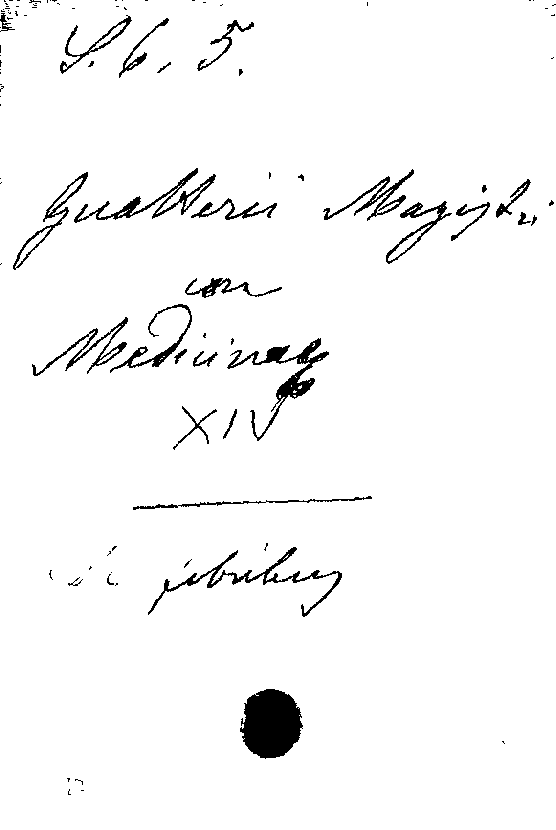 S. 6. 5.
Gualterii Magistri
Medicinae
XIV
febribus